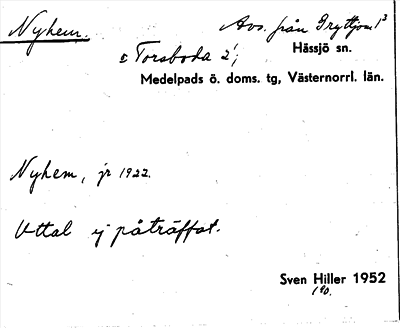 Nyhem.
Avs. från Gryttjom 1³
i Torsboda 2¹;
Hässjö sn.
Medelpads ö. doms. tg, Västernorrl. län.
Nyhem, jr 1922.
Uttal ej påträffat.
Sven Hiller 1952